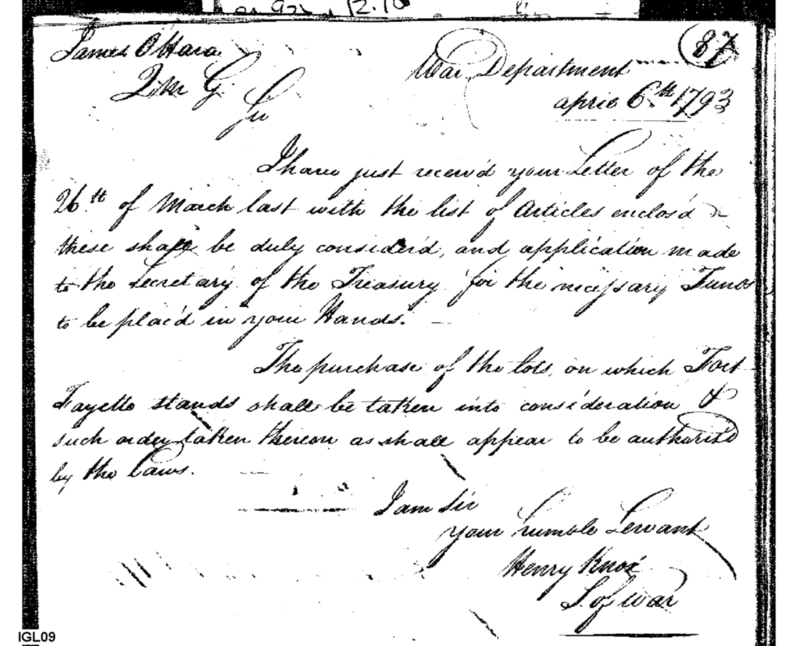 87
James O Hara
Q M G.
Sir
War Department
april 6th 1793
I have just receiv'd your Letter of the
26th of March last with the list of Articles enclos'd &
these shall be duly consider'd, and application made
to the Secretary of the Treasury for the necessary Funds
to be plac'd in your Hands. —
The purchase of the lots, on which Fort
Fayette stands shall be taken into consideration &
such order taken thereon as shall appear to be authoris'd
by the Laws. —
I am Sir
your humble Servant
Henry Knox
S. of War
IGL09